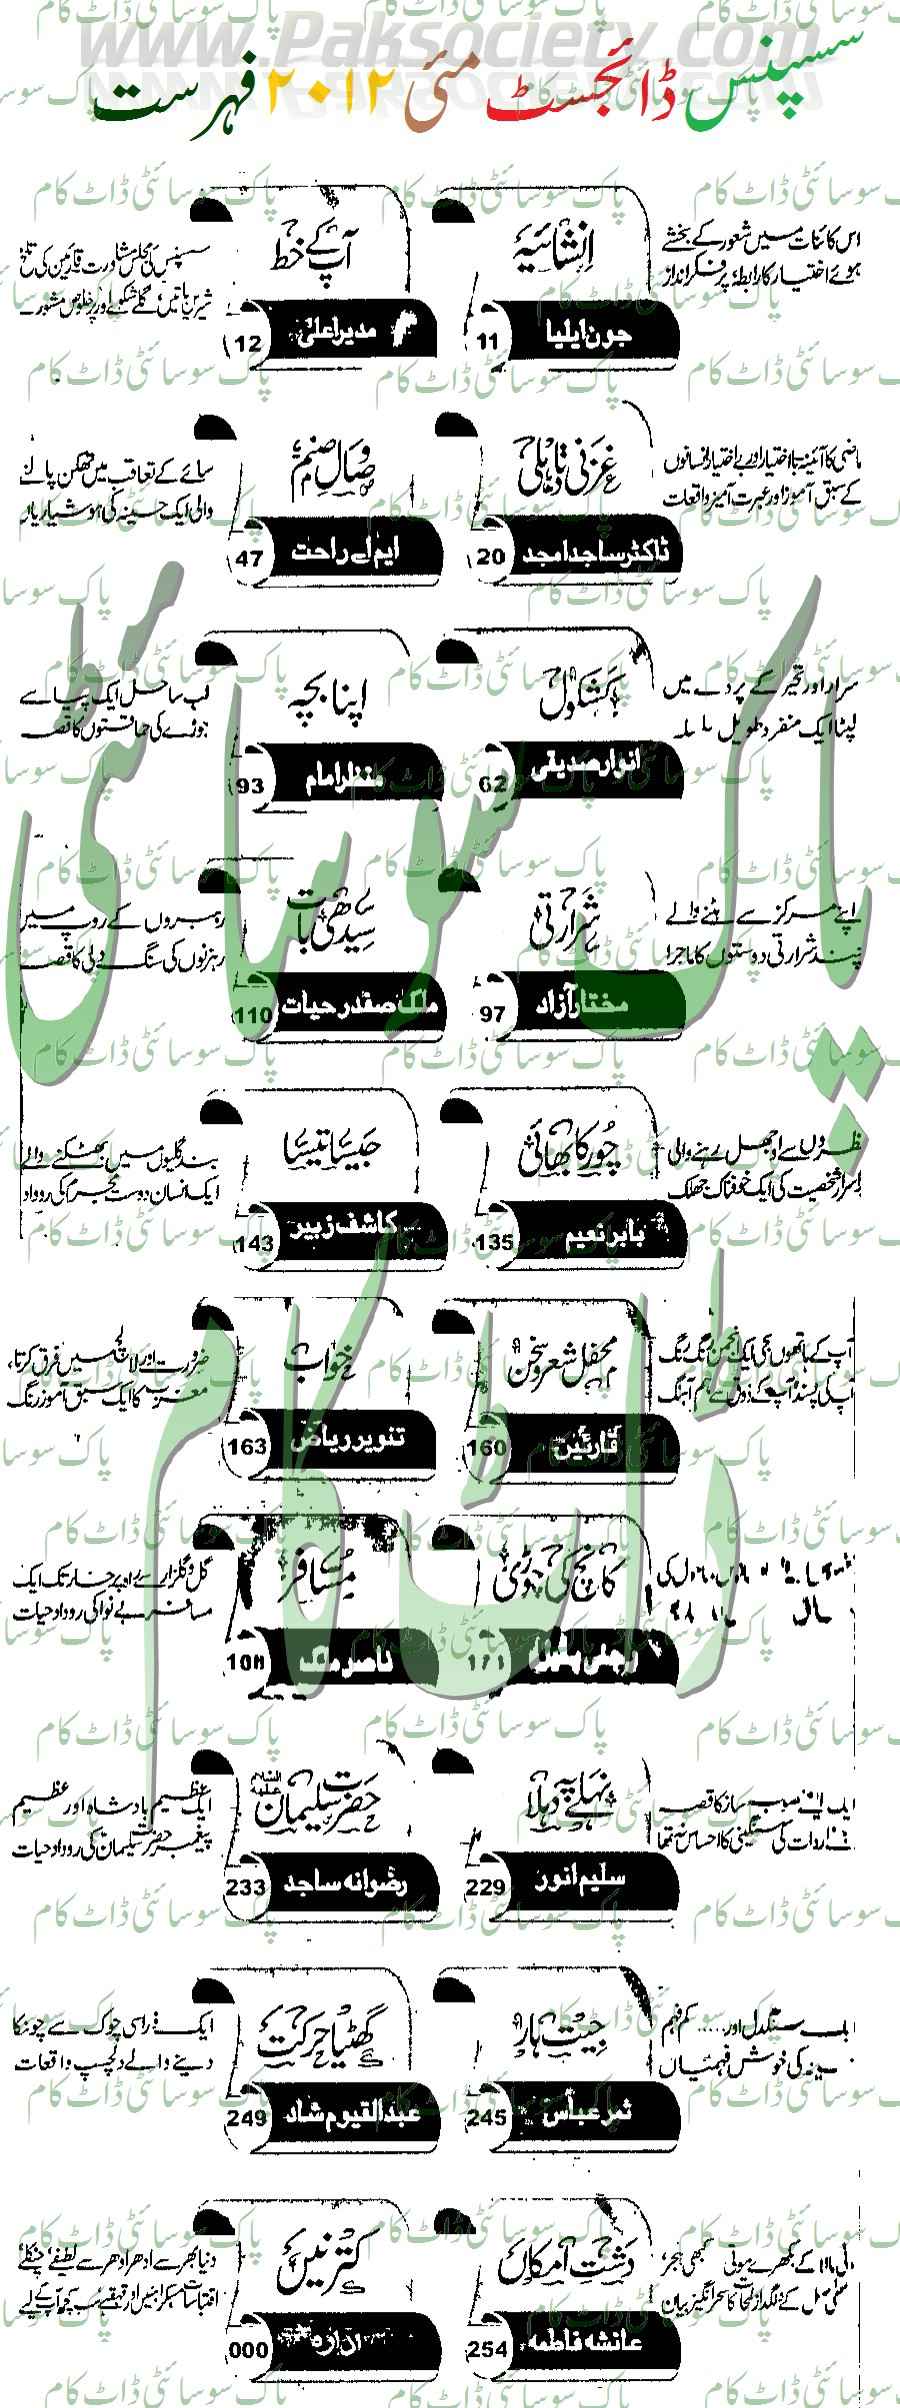 www.Paksociety.com
سسپنس ڈائجسٹ مئی ۲۰۱۲ فہرست
اس کائنات میں شعور کے بخشے
ہوئے اختیار کا رابطہ پر فکر انداز
انشائیہ
جون ایلیا
11
آپ کے خط
مدیر اعلیٰ
12
سسپنس کی مجلس مشاورت قارئین کی تلخ
شیریں باتیں گلے شکوے اور پر خلوص مشورے
ماضی کا آئینہ با اختیار اور بے اختیار انسانوں
کے سبق آموز اور عبرت آمیز واقعات
غزنی تا دہلی
ڈاکٹر ساجد امجد
20
وصال صنم
ایم اے راحت
47
سائے کے تعاقب میں تھکن پا لینے
والی ایک حسینہ کی ہوشیاریاں
اسرار اور تحیر کے پردے میں
لپٹا ایک منفرد طویل سلسلہ
کشکول
انوار صدیقی
62
اپنا بچہ
منظر امام
93
لب ساحل ایک پیاسے
جوڑے کی حماقتوں کا قصہ
اپنے مرکز سے ہٹنے والے
چند شرارتی دوستوں کا ماجرا
شرارتی
مختار آزاد
97
سیدھی بات
ملک صفدر حیات
110
رہبروں کے روپ میں
رہزنوں کی سنگ دلی کا قصہ
نظروں سے اوجھل رہنے والی
پراسرار شخصیت کی ایک خوفناک جھلک
چور کا بھائی
بابر نعیم
135
جیسا تیسا
کاشف زبیر
143
بند گلیوں میں بھٹکنے والے
ایک انسان دوست مجرم کی روداد
آپ کے ہاتھوں سجی ایک انجمن رنگ رنگ
آپ کی پسند آپ کے ذوق سے ہم آہنگ
محفل شعر و سخن
قارئین
160
خواب
تنویر ریاض
163
ضرورت اور لالچ میں فرق کرتا،
مغرب کا ایک سبق آموز رنگ
کانچ کی چوڑی
مسافر
ناصر ملک
گل و گلزار سے راہ پر خار تک ایک
مسافر بے نوا کی روداد حیات
ایک اپنے منصوبہ ساز کا قصہ
واردات کی سنگینی کا احساس نہ تھا
نہلے پہ دہلا
سلیم انور
229
حضرت سلیمان علیہ السلام
رضوانہ ساجد
233
ایک عظیم بادشاہ اور عظیم
پیغمبر حضرت سلیمان کی روداد حیات
سنگدل اور ..... کم فہم
کی خوش فہمیاں
جیت ہار
ثمر عباس
245
گھٹیا حرکت
عبدالقیوم شاد
249
ایک ذرا سی چوک سے چونکا
دینے والے دلچسپ واقعات
کے بکھرے موتی کبھی ہجر
کے دلگداز لمحات کا سحر انگیز بیان
دشت امکاں
عائشہ فاطمہ
254
کترنیں
ادارہ
000
دنیا بھر سے ادھر ادھر سے لطیفے چٹکلے
اقتباسات مسکراہٹیں اور قہقہے سب کچھ آپ کے لیے
پاک سوسائٹی ڈاٹ کام